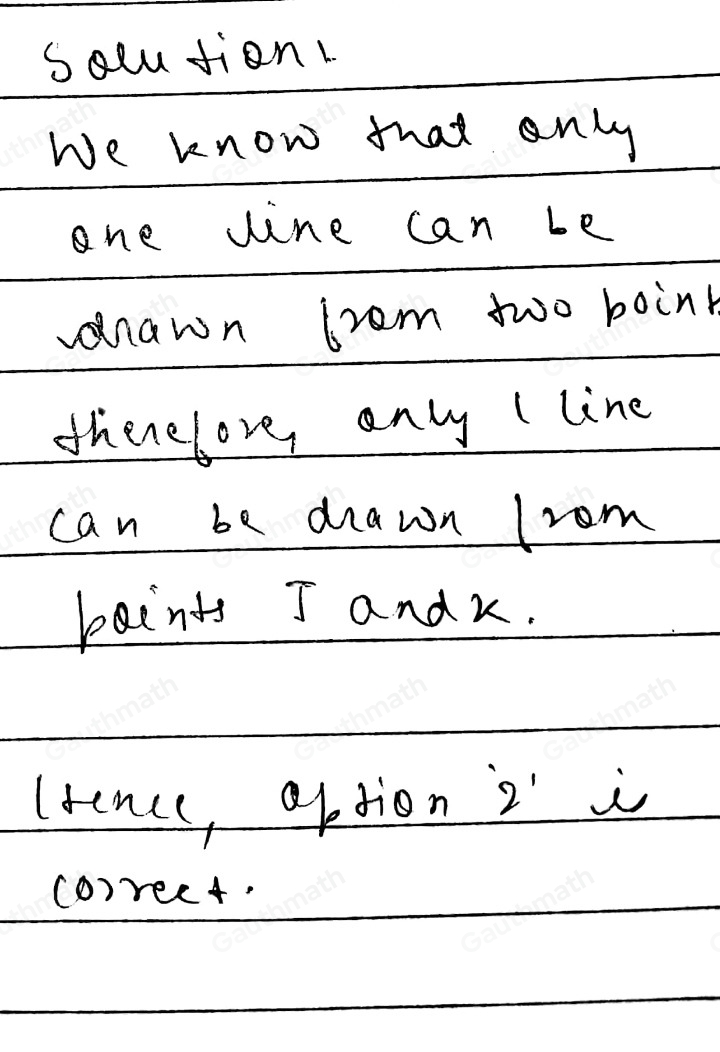 Solution:
We know that only
one line can be
drawn from two point
therefore, only 1 line
can be drawn from
points J and K.
Hence, option '2' is
correct.